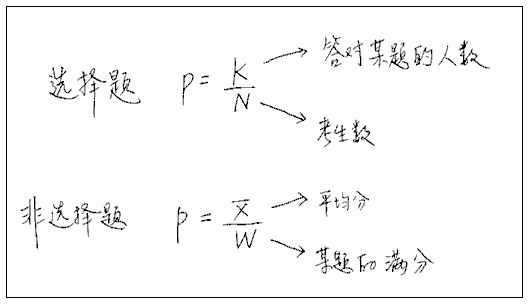 选择题 P = K/N → 答对某题的人数
→ 考生数
非选择题 P = X̄/W → 平均分
→ 某题的满分